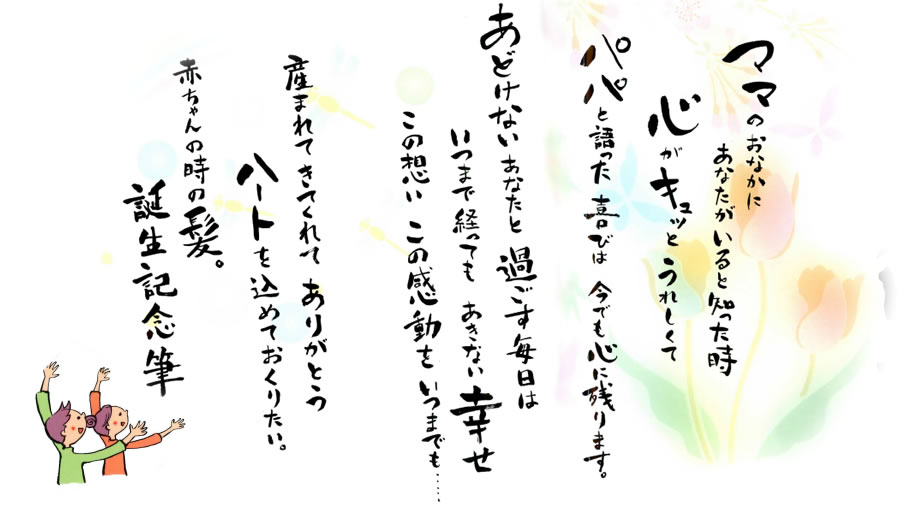 ママのおなかに
あなたがいると知った時
心がキュッとうれしくて
パパと語った喜びは 今でも心に残ります。
あどけないあなたと過ごす毎日は
いつまで経っても あきない幸せ
この想い この感動を いつまでも……
産まれてきてくれて ありがとう
ハートを込めておくりたい。
赤ちゃんの時の髪。
誕生記念筆